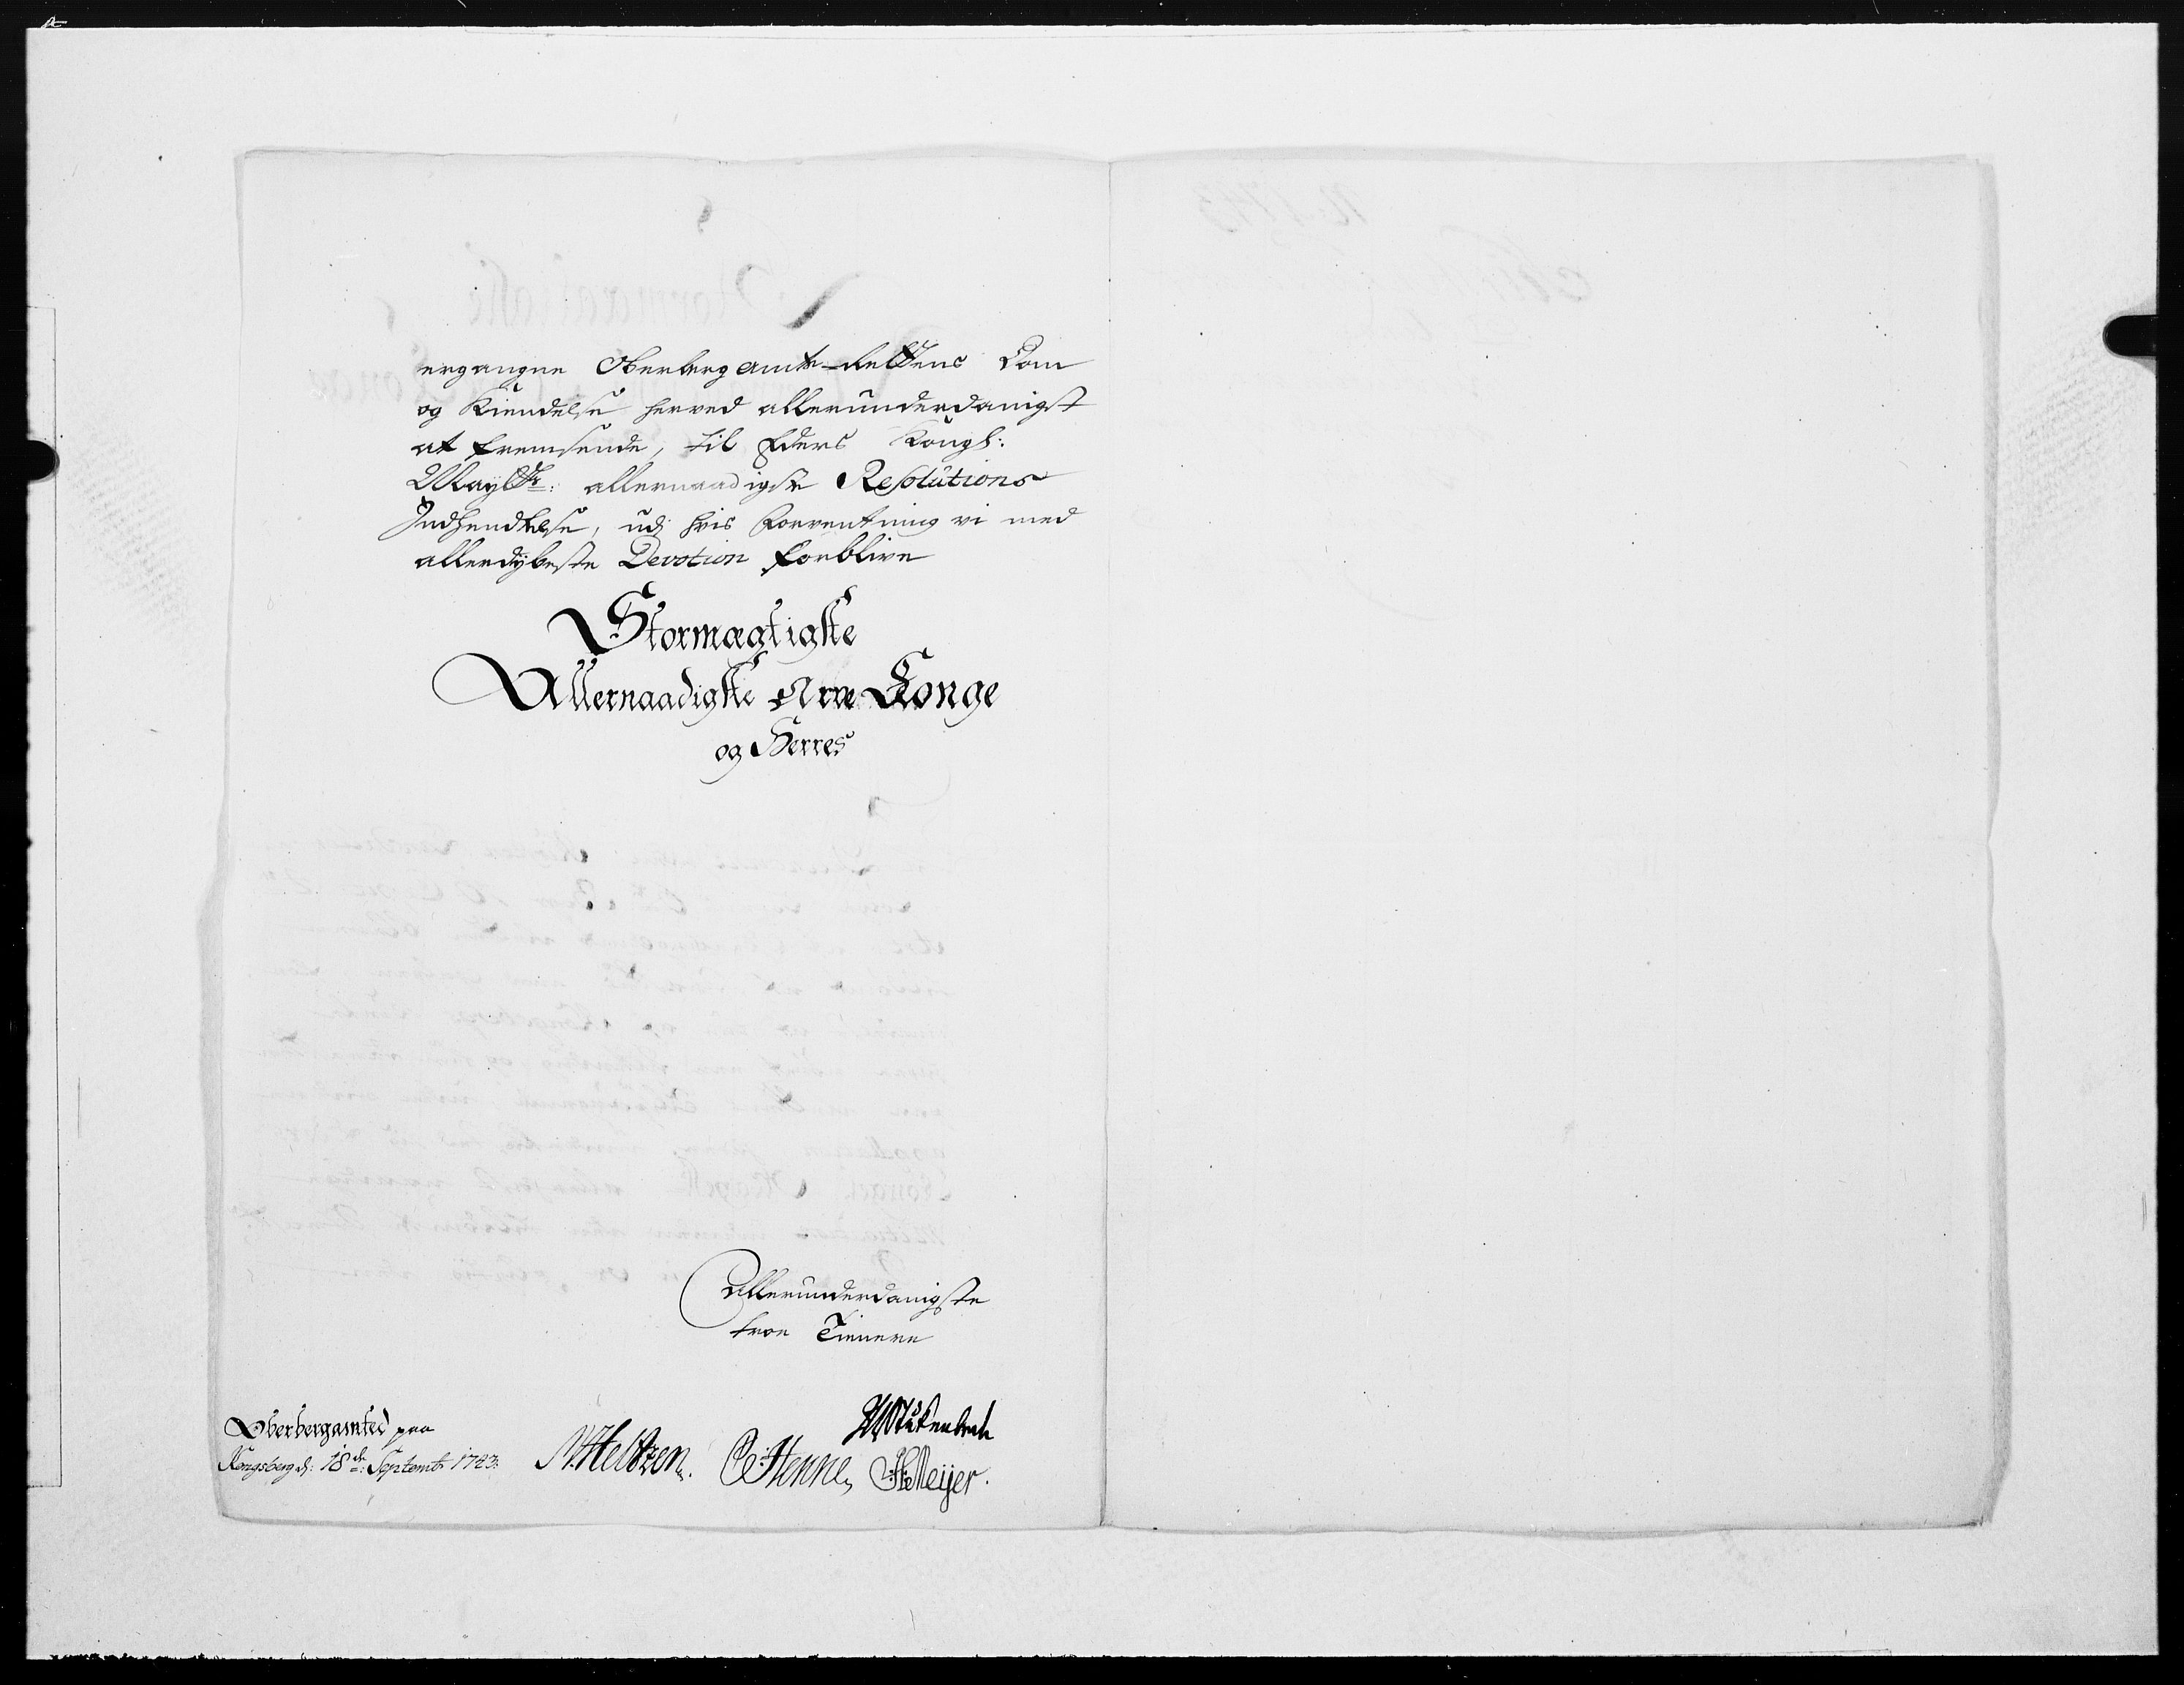 ergangne Oberbergamts-Rettens Dom
og Kiendelse herved allerunderdanigst
at fremsende, til Eders Kongl:
Mayts: allernaadigste Resolutions
Indhendtelse, udj hvis Forventning vi med
allerdybeste Devotion forblive
Stormægtigste
Allernaadigste Arve Konge
og Herres
Allerunderdanigste
troe Tienere
Oberbergamted paa
Kongsberg d: 18de Septemb 1743:
Stukenbrok
N. Heltzen. Henne, Meijer.